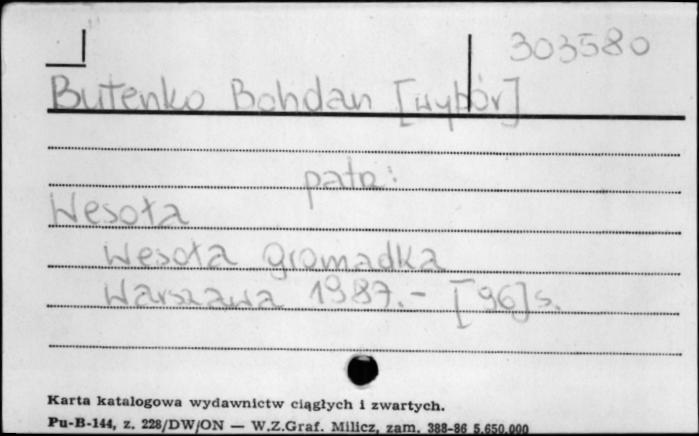 303580
Butenko Bohdan [wybór]
patrz:
Wesoła
Wesoła gromadka
Warszawa 1987.- [96]s.
Karta katalogowa wydawnictw ciągłych i zwartych.
Pu-B-144, z. 228/DW/ON — W.Z.Graf. Milicz, zam. 388-86 5.650.000